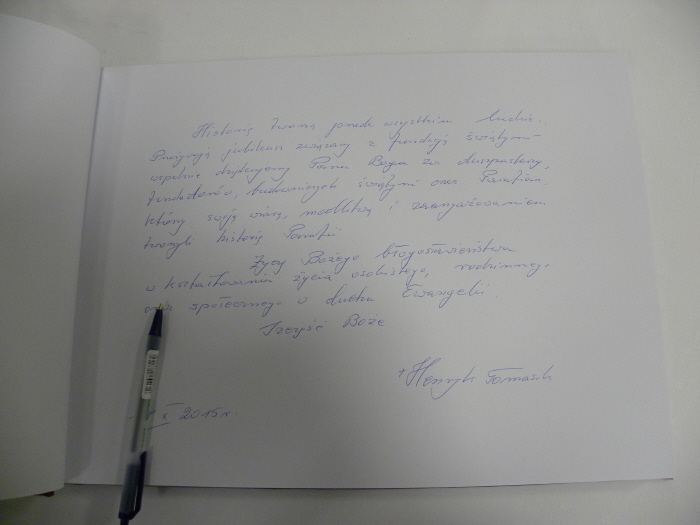 Historię tworzą przede wszystkim ludzie.
Przeżywając jubileusz związany z fundacją świątyni
wspólnie dziękujemy Panu Bogu za duszpasterzy,
fundatorów, budowniczych świątyni oraz Parafian,
którzy swoją wiarą, modlitwą i zaangażowaniem
tworzyli historię Parafii
Życzę Bożego błogosławieństwa
w kształtowaniu życia osobistego, rodzinnego
oraz społecznego w duchu Ewangelii.
Szczęść Boże
+ Henryk Tomasik
X 2015 r.